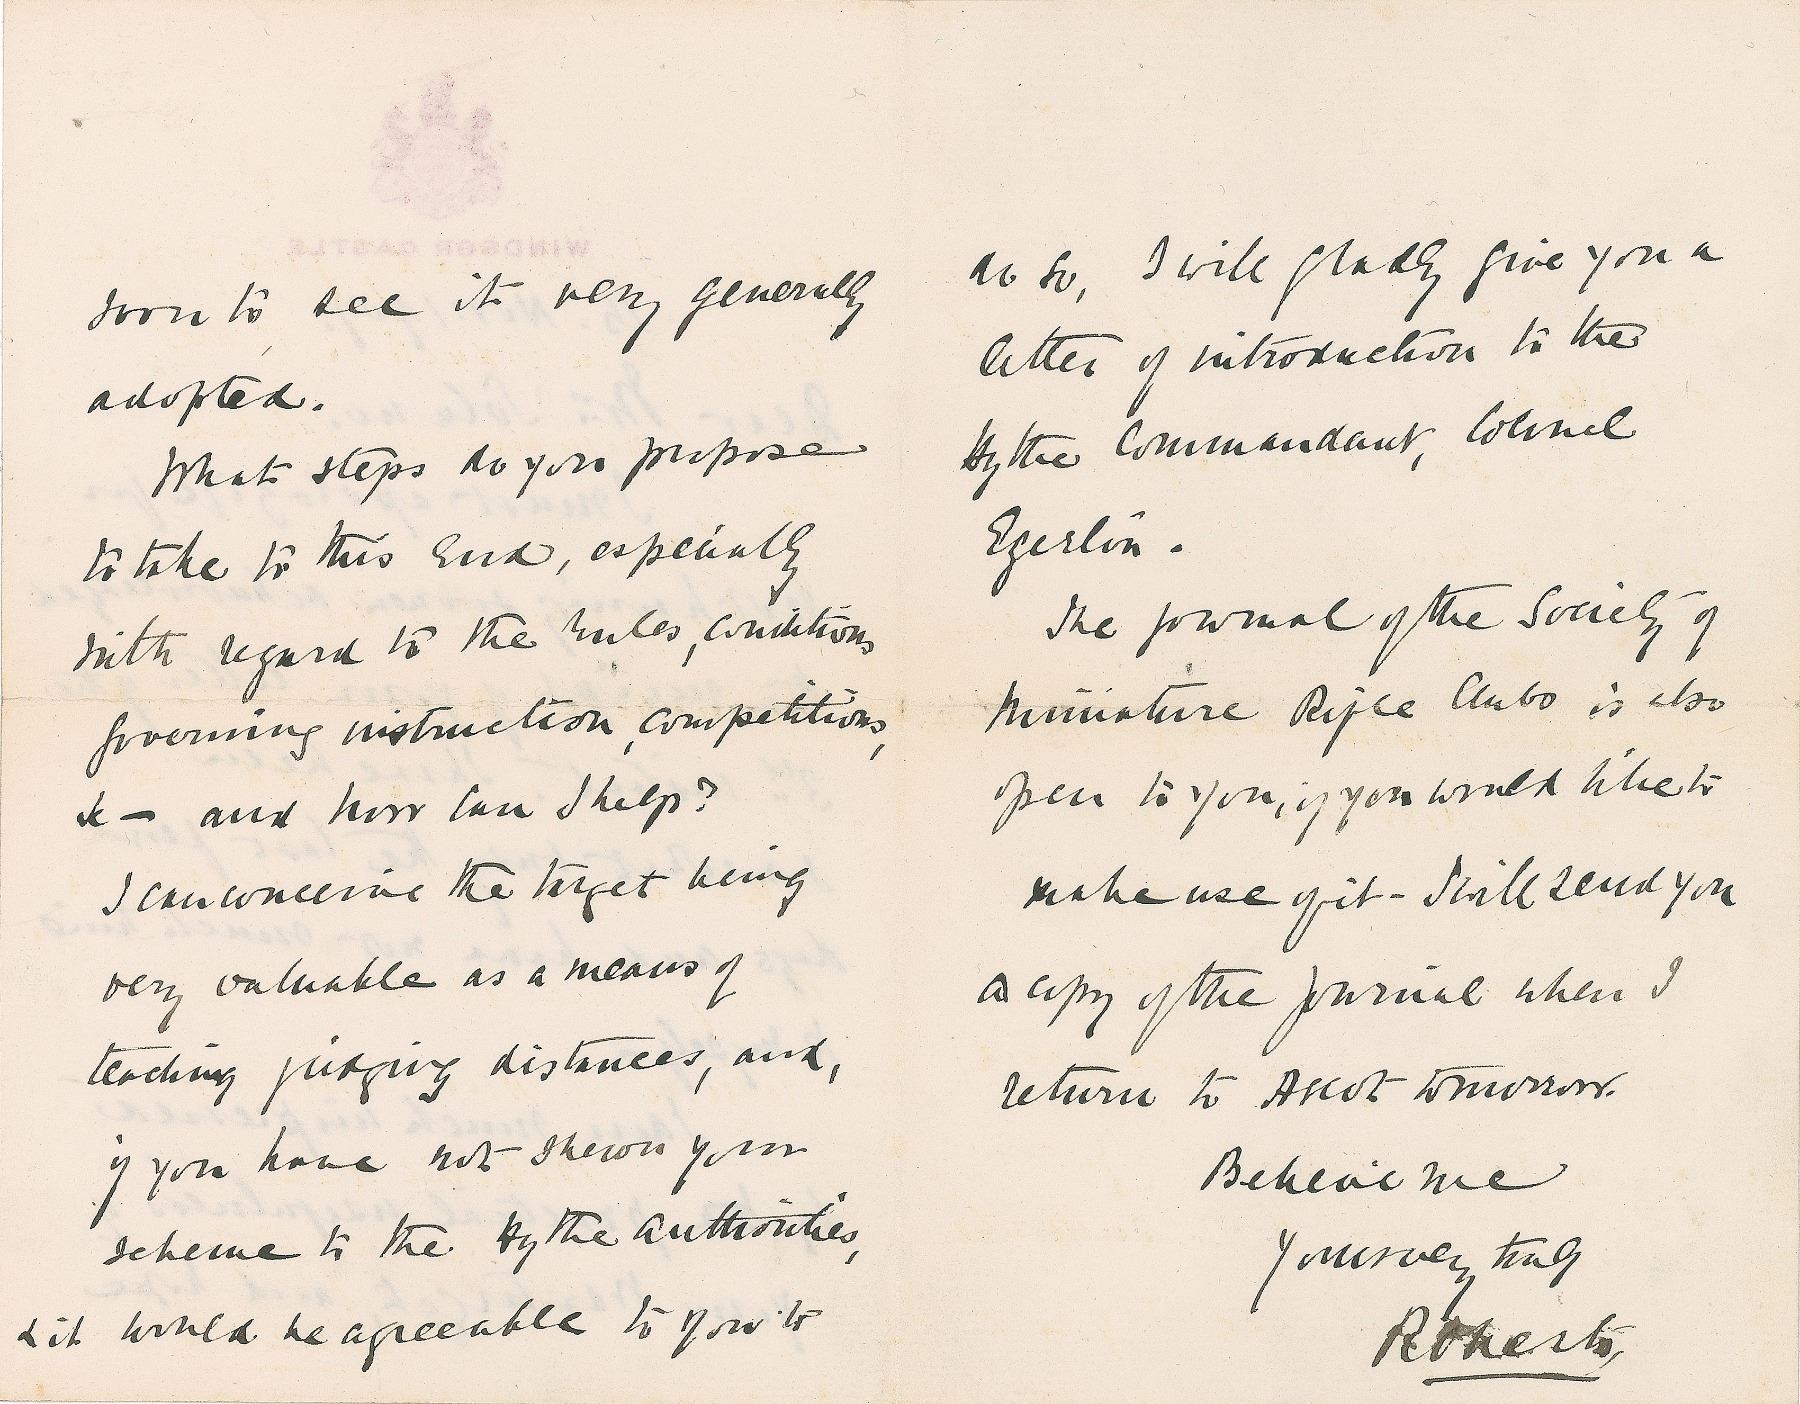 WINDSOR CASTLE
soon to see it very generally
adopted.
What steps do you propose
to take to this end, especially
with regard to the rules, conditions
governing instruction, competitions,
&c — and how can I help?
I can conceive the target being
very valuable as a means of
teaching judging distances, and,
if you have not shewn your
scheme to the Hythe Authorities,
& it would be agreeable to you to
do so, I will gladly give you a
letter of introduction to the
Hythe Commandant, Colonel
Egerton.
The journal of the Society of
Miniature Rifle Clubs is also
open to you, if you would like to
make use of it - I will send you
a copy of the Journal when I
return to Ascot tomorrow.
Believe me
Yours very truly
Roberts,